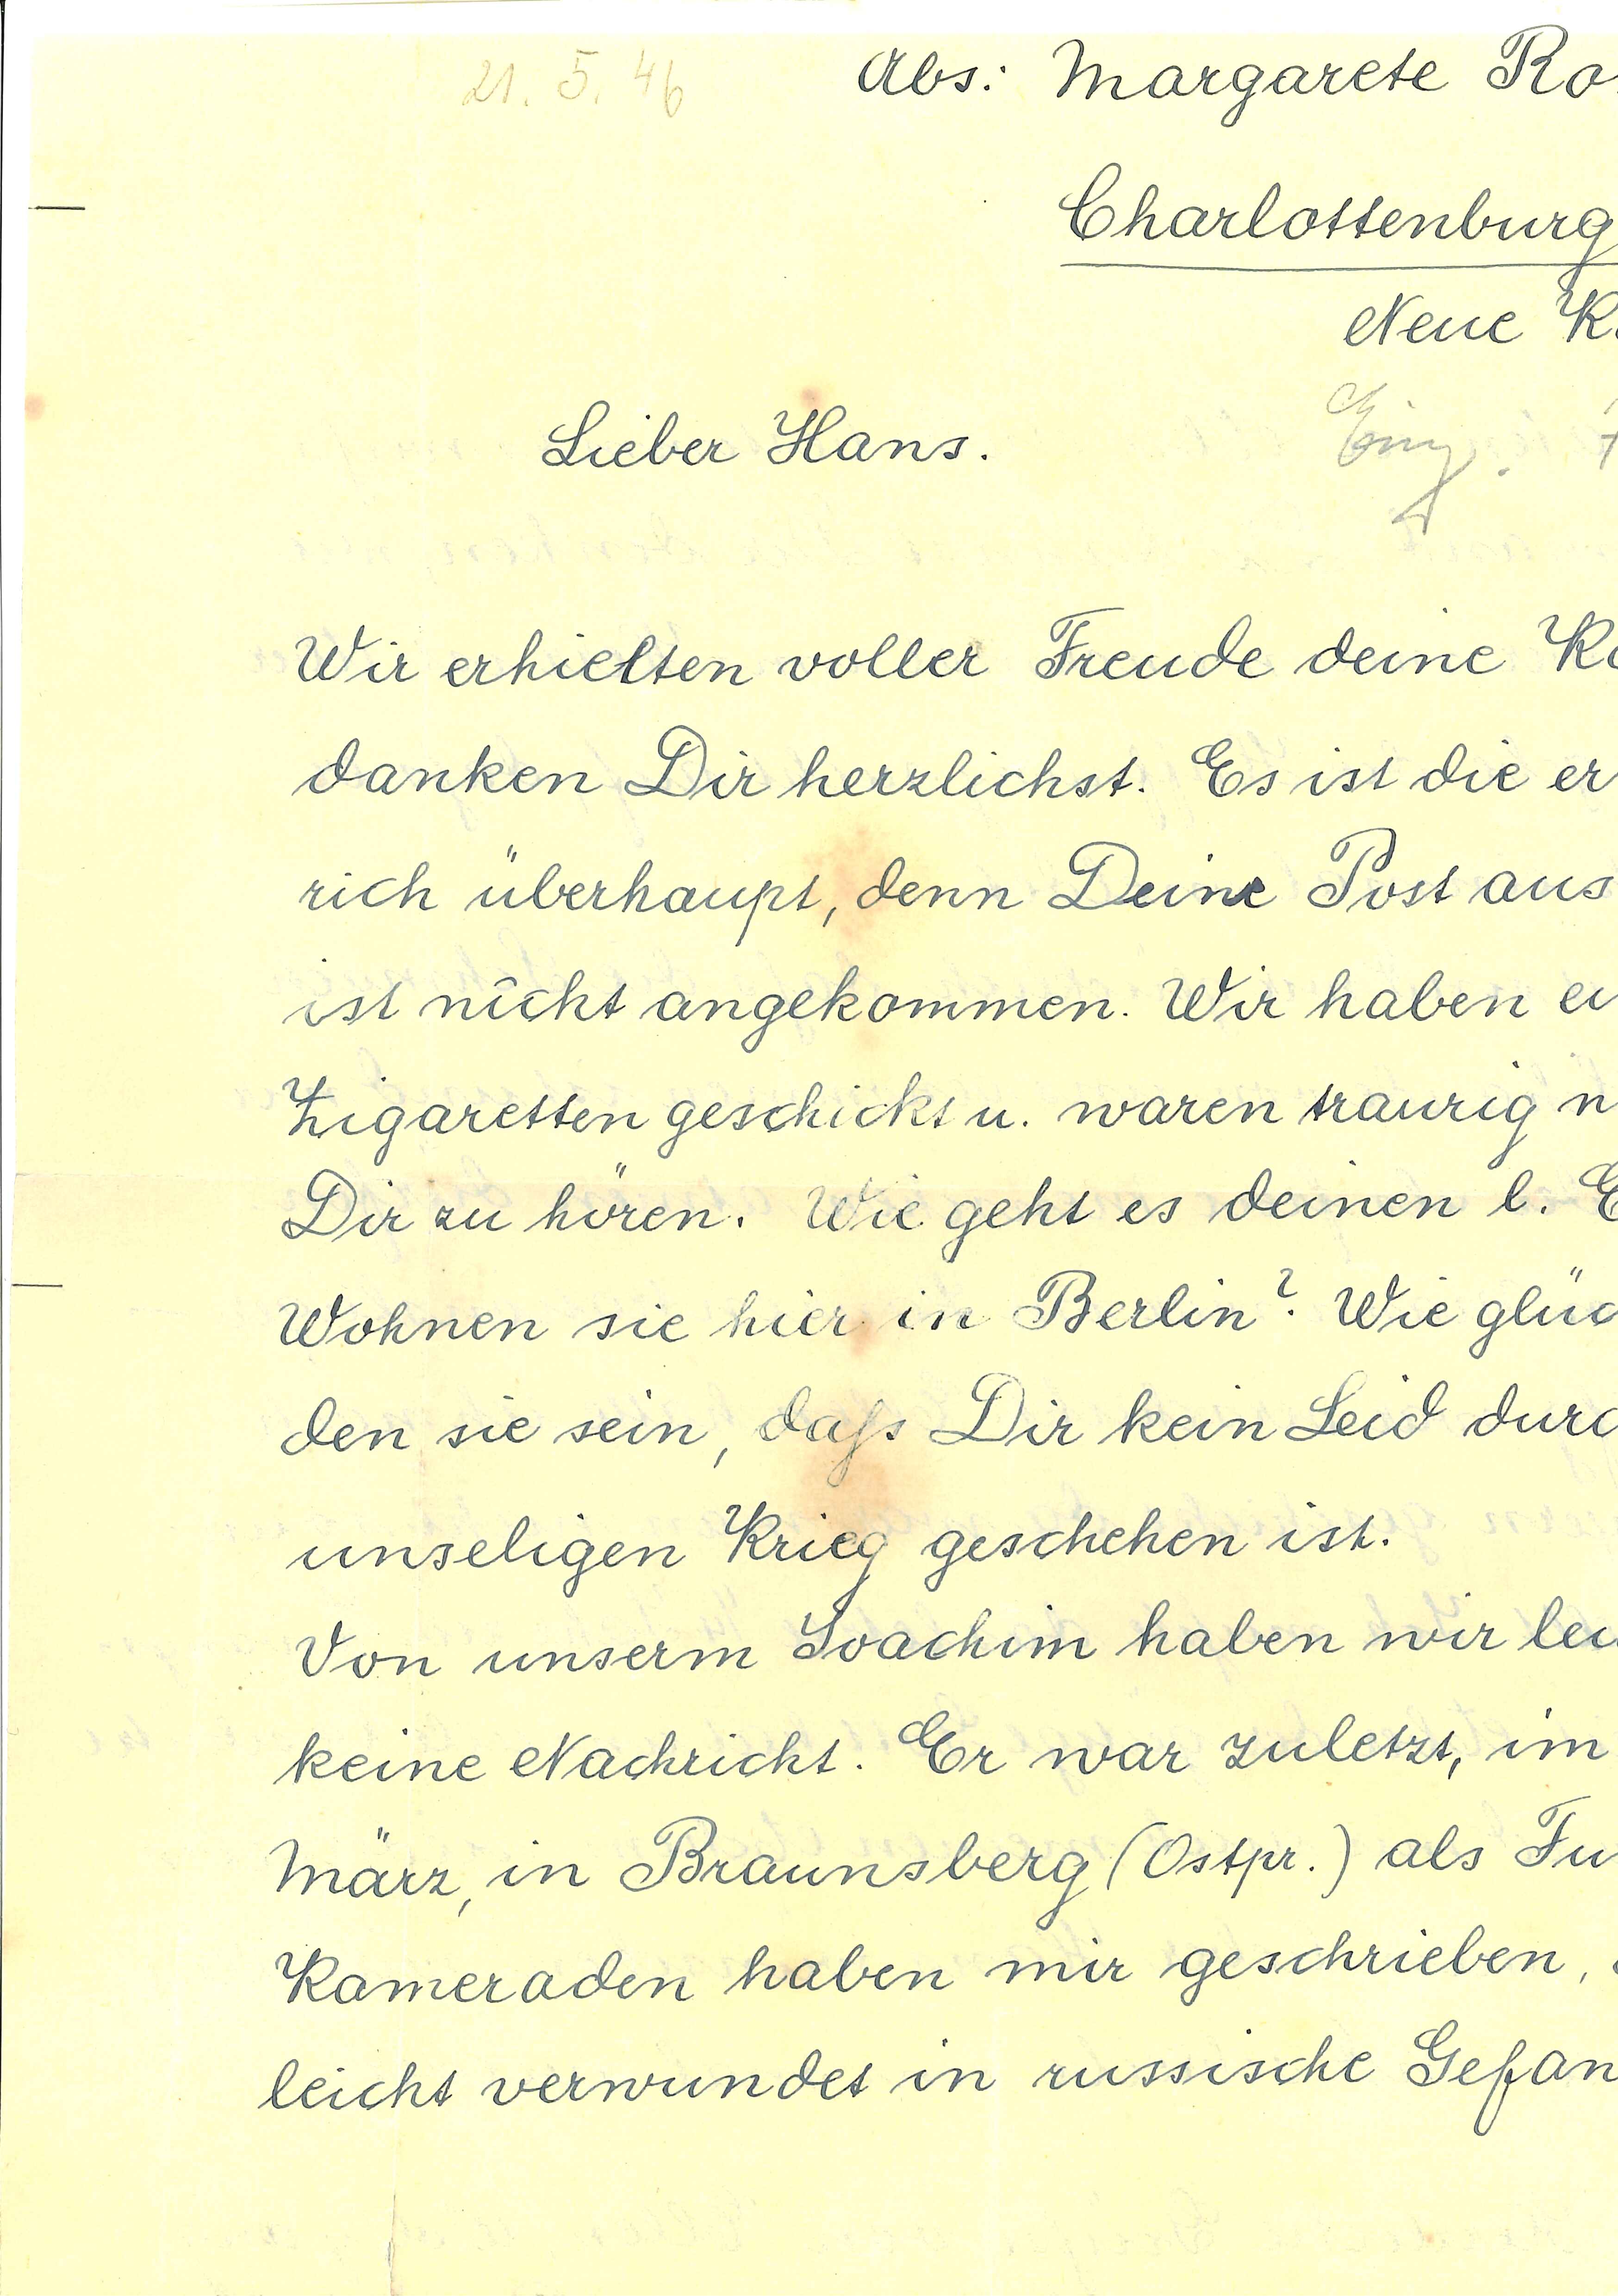 21. 5. 46
Abs: Margarete Ro
Charlottenburg
Neue K
Lieber Hans.
Eing.
Wir erhielten voller Freude deine K
danken Dir herzlichst. Es ist die er
rich überhaupt, denn Deine Post aus
ist nicht angekommen. Wir haben ei
Zigaretten geschickt u. waren traurig n
Dir zu hören. Wie geht es deinen l. E
Wohnen sie hier in Berlin? Wie glüc
den sie sein, daß Dir kein Leid durc
unseligen Krieg geschehen ist.
Von unserm Joachim haben wir lei
keine Nachricht. Er war zuletzt, im
März, in Braunsberg (Ostpr.) als Fu
Kameraden haben mir geschrieben,
leicht verwundet in russische Gefan